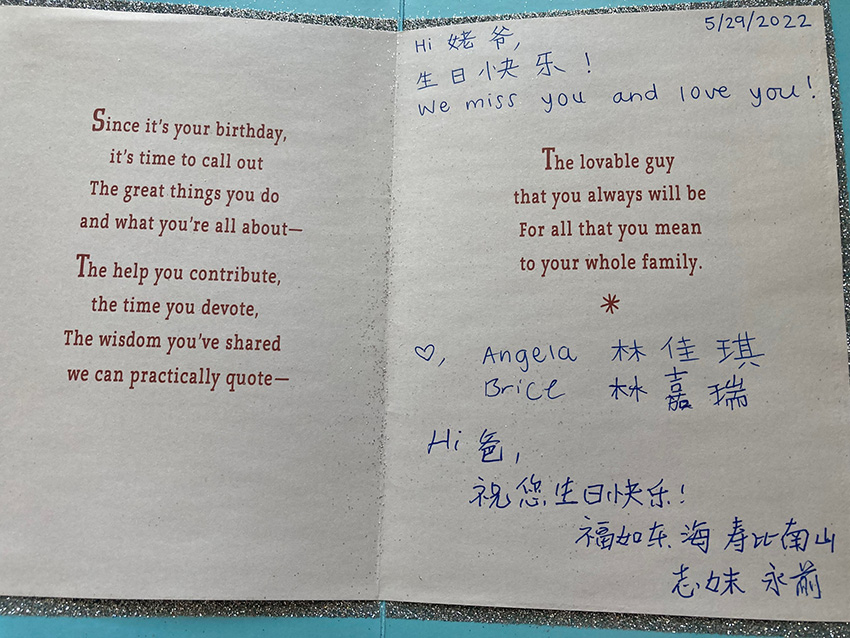 Since it's your birthday,
it's time to call out
The great things you do
and what you're all about—
The help you contribute,
the time you devote,
The wisdom you've shared
we can practically quote—
5/29/2022
Hi 姥爷,
生日快乐!
We miss you and love you!
The lovable guy
that you always will be
For all that you mean
to your whole family.
♡, Angela 林佳琪
Brice 林嘉瑞
Hi 爸,
祝您生日快乐!
福如东海 寿比南山
永前